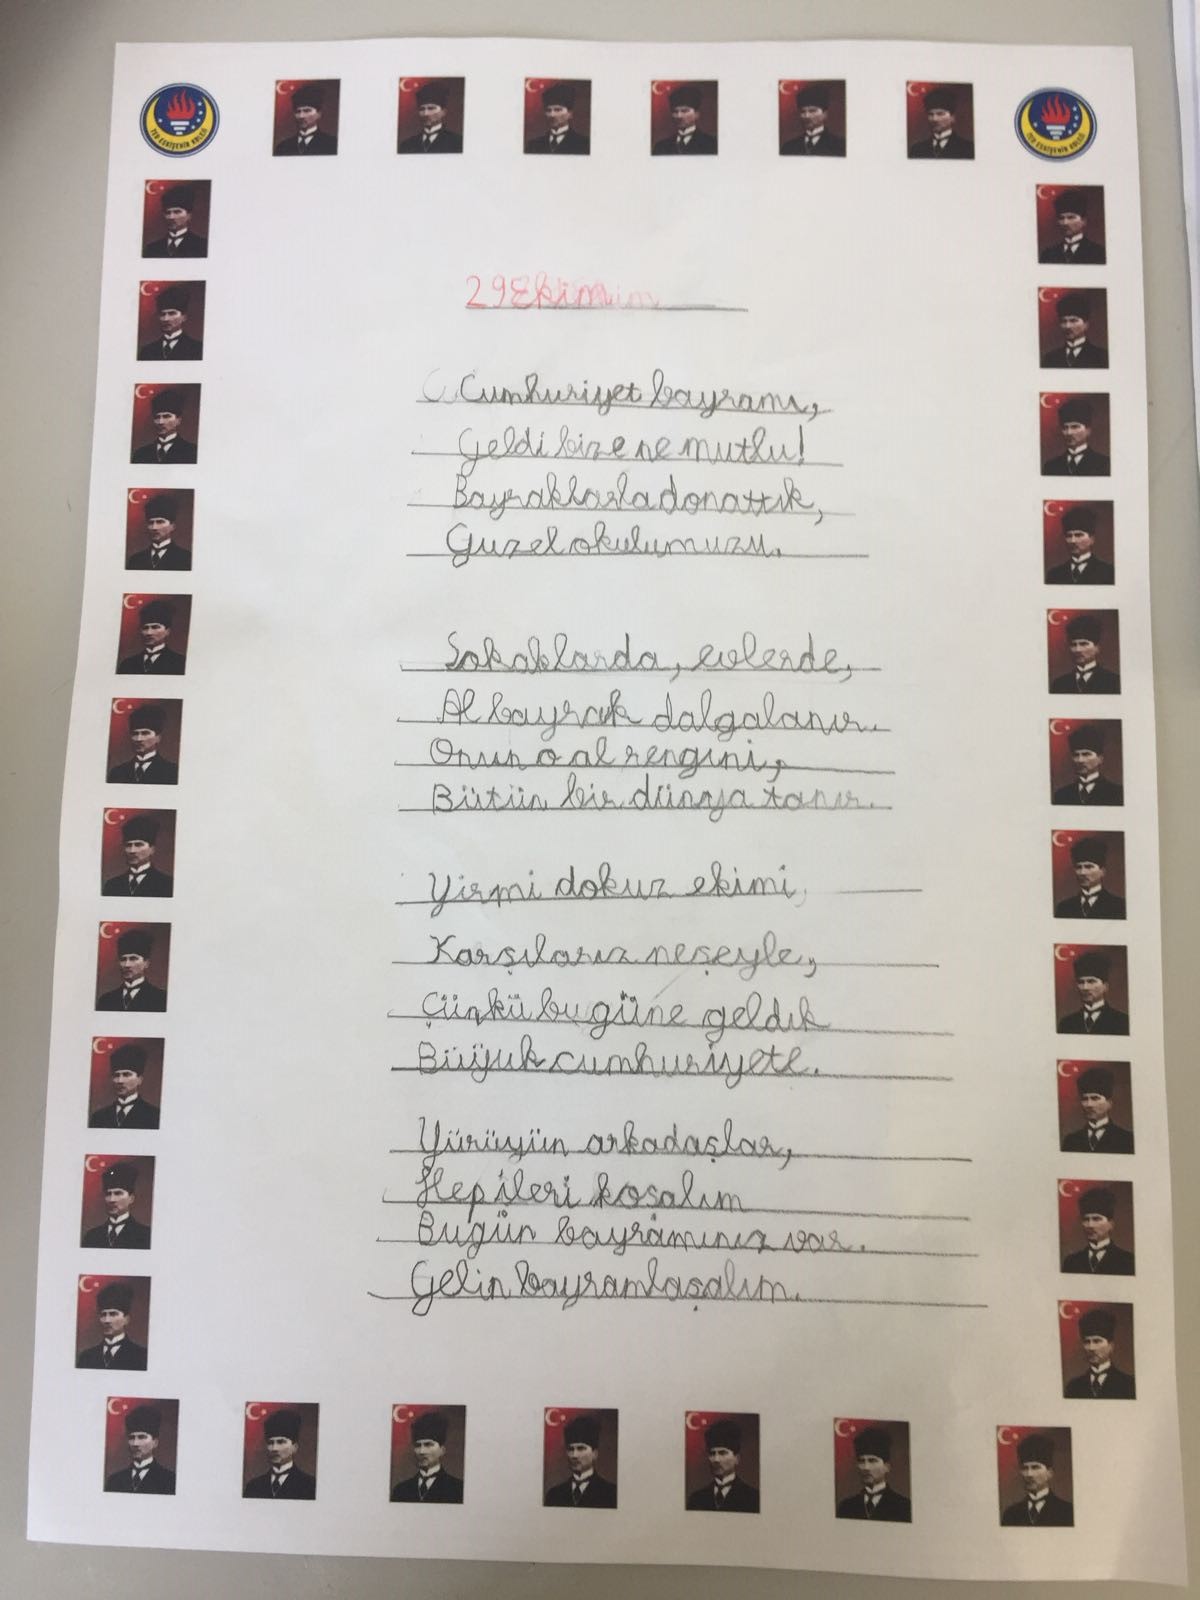 TED ESKİŞEHİR KOLEJİ
TED ESKİŞEHİR KOLEJİ
29 Ekimim
Cumhuriyet bayramı,
Geldi bize ne mutlu!
Bayraklarla donattık,
Guzel okulumuzu.
Sokaklarda, evlerde,
Al bayrak dalgalanır.
Onun o al rengini,
Bütün bir dünya tanır.
Yirmi dokuz ekimi,
Karşılarız neşeyle,
Çünkü bu güne geldik
Büyük cumhuriyete.
Yürüyün arkadaşlar,
Hep ileri koşalım
Bugün bayramınız var.
Gelin bayramlaşalım.